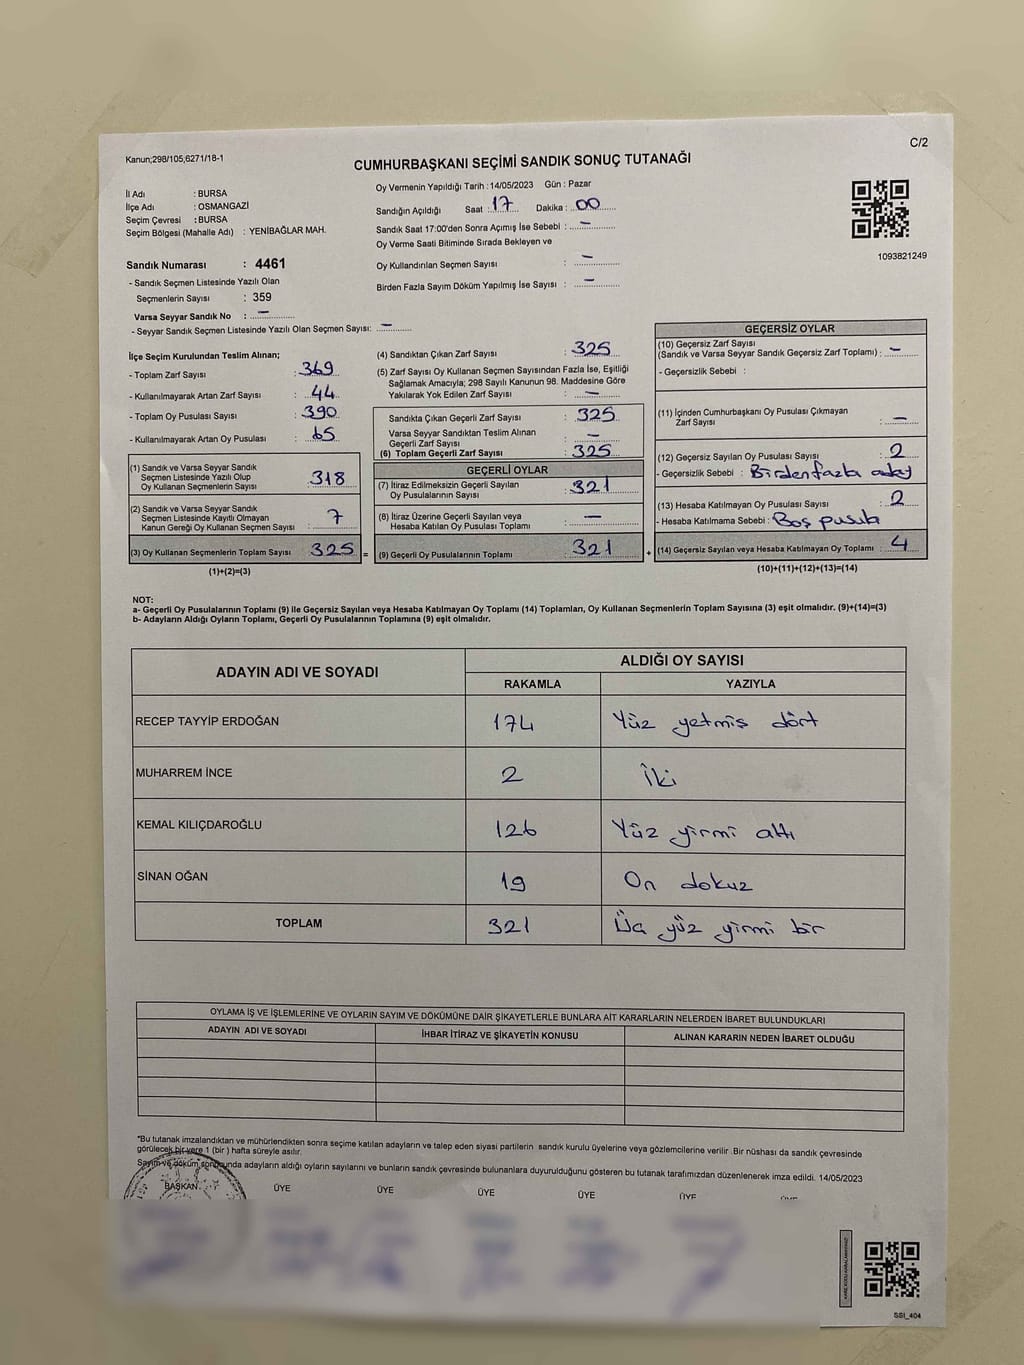 Kanun;298/105,6271/18-1
C/2
CUMHURBAŞKANI SEÇİMİ SANDIK SONUÇ TUTANAĞI
İl Adı : BURSA
İlçe Adı : OSMANGAZİ
Seçim Çevresi : BURSA
Seçim Bölgesi (Mahalle Adı) : YENİBAĞLAR MAH.
Oy Vermenin Yapıldığı Tarih : 14/05/2023 Gün : Pazar
Sandığın Açıldığı Saat : 17 Dakika : 00
Sandık Saat 17:00'den Sonra Açımış İse Sebebi : —
Oy Verme Saati Bitiminde Sırada Bekleyen ve
Oy Kullandırılan Seçmen Sayısı : —
Birden Fazla Sayım Döküm Yapılmış İse Sayısı : —
1093821249
Sandık Numarası : 4461
- Sandık Seçmen Listesinde Yazılı Olan
Seçmenlerin Sayısı : 359
Varsa Seyyar Sandık No : —
- Seyyar Sandık Seçmen Listesinde Yazılı Olan Seçmen Sayısı: —
İlçe Seçim Kurulundan Teslim Alınan;
- Toplam Zarf Sayısı : 369
- Kullanılmayarak Artan Zarf Sayısı : 44
- Toplam Oy Pusulası Sayısı : 390
- Kullanılmayarak Artan Oy Pusulası : 65
(1) Sandık ve Varsa Seyyar Sandık
Seçmen Listesinde Yazılı Olup
Oy Kullanan Seçmenlerin Sayısı : 318
(2) Sandık ve Varsa Seyyar Sandık
Seçmen Listesinde Kayıtlı Olmayan
Kanun Gereği Oy Kullanan Seçmen Sayısı : 7
(3) Oy Kullanan Seçmenlerin Toplam Sayısı : 325 =
(1)+(2)=(3)
(4) Sandıktan Çıkan Zarf Sayısı : 325
(5) Zarf Sayısı Oy Kullanan Seçmen Sayısından Fazla İse, Eşitliği
Sağlamak Amacıyla; 298 Sayılı Kanunun 98. Maddesine Göre
Yakılarak Yok Edilen Zarf Sayısı : —
Sandıkta Çıkan Geçerli Zarf Sayısı : 325
Varsa Seyyar Sandıktan Teslim Alınan
Geçerli Zarf Sayısı : —
(6) Toplam Geçerli Zarf Sayısı : 325
GEÇERLİ OYLAR
(7) İtiraz Edilmeksizin Geçerli Sayılan
Oy Pusulalarının Sayısı : 321
(8) İtiraz Üzerine Geçerli Sayılan veya
Hesaba Katılan Oy Pusulası Toplamı : —
(9) Geçerli Oy Pusulalarının Toplamı : 321 +
GEÇERSİZ OYLAR
(10) Geçersiz Zarf Sayısı
(Sandık ve Varsa Seyyar Sandık Geçersiz Zarf Toplamı) : —
- Geçersizlik Sebebi :
(11) İçinden Cumhurbaşkanı Oy Pusulası Çıkmayan
Zarf Sayısı : —
(12) Geçersiz Sayılan Oy Pusulası Sayısı : 2
- Geçersizlik Sebebi : Birden fazla aday
(13) Hesaba Katılmayan Oy Pusulası Sayısı : 2
- Hesaba Katılmama Sebebi : Boş pusula
(14) Geçersiz Sayılan veya Hesaba Katılmayan Oy Toplamı : 4
(10)+(11)+(12)+(13)=(14)
NOT:
a- Geçerli Oy Pusulalarının Toplamı (9) ile Geçersiz Sayılan veya Hesaba Katılmayan Oy Toplamı (14) Toplamları, Oy Kullanan Seçmenlerin Toplam Sayısına (3) eşit olmalıdır. (9)+(14)=(3)
b- Adayların Aldığı Oyların Toplamı, Geçerli Oy Pusulalarının Toplamına (9) eşit olmalıdır.
ADAYIN ADI VE SOYADI
ALDIĞI OY SAYISI
RAKAMLA YAZIYLA
RECEP TAYYİP ERDOĞAN 174 Yüz yetmiş dört
MUHARREM İNCE 2 İki
KEMAL KILIÇDAROĞLU 126 Yüz yirmi altı
SİNAN OĞAN 19 On dokuz
TOPLAM 321 Üç yüz yirmi bir
OYLAMA İŞ VE İŞLEMLERİNE VE OYLARIN SAYIM VE DÖKÜMÜNE DAİR ŞİKAYETLERLE BUNLARA AİT KARARLARIN NELERDEN İBARET BULUNDUKLARI
ADAYIN ADI VE SOYADI İHBAR İTİRAZ VE ŞİKAYETİN KONUSU ALINAN KARARIN NEDEN İBARET OLDUĞU
"Bu tutanak imzalandıktan ve mühürlendikten sonra seçime katılan adayların ve talep eden siyasi partilerin sandık kurulu üyelerine veya gözlemcilerine verilir .Bir nüshası da sandık çevresinde
görülecek bir yere 1 (bir ) hafta süreyle asılır.
Sayım ve döküm sonucunda adayların aldığı oyların sayılarını ve bunların sandık çevresinde bulunanlara duyurulduğunu gösteren bu tutanak tarafımızdan düzenlenerek imza edildi. 14/05/2023
BAŞKAN ÜYE ÜYE ÜYE ÜYE ÜYE
SSI_404